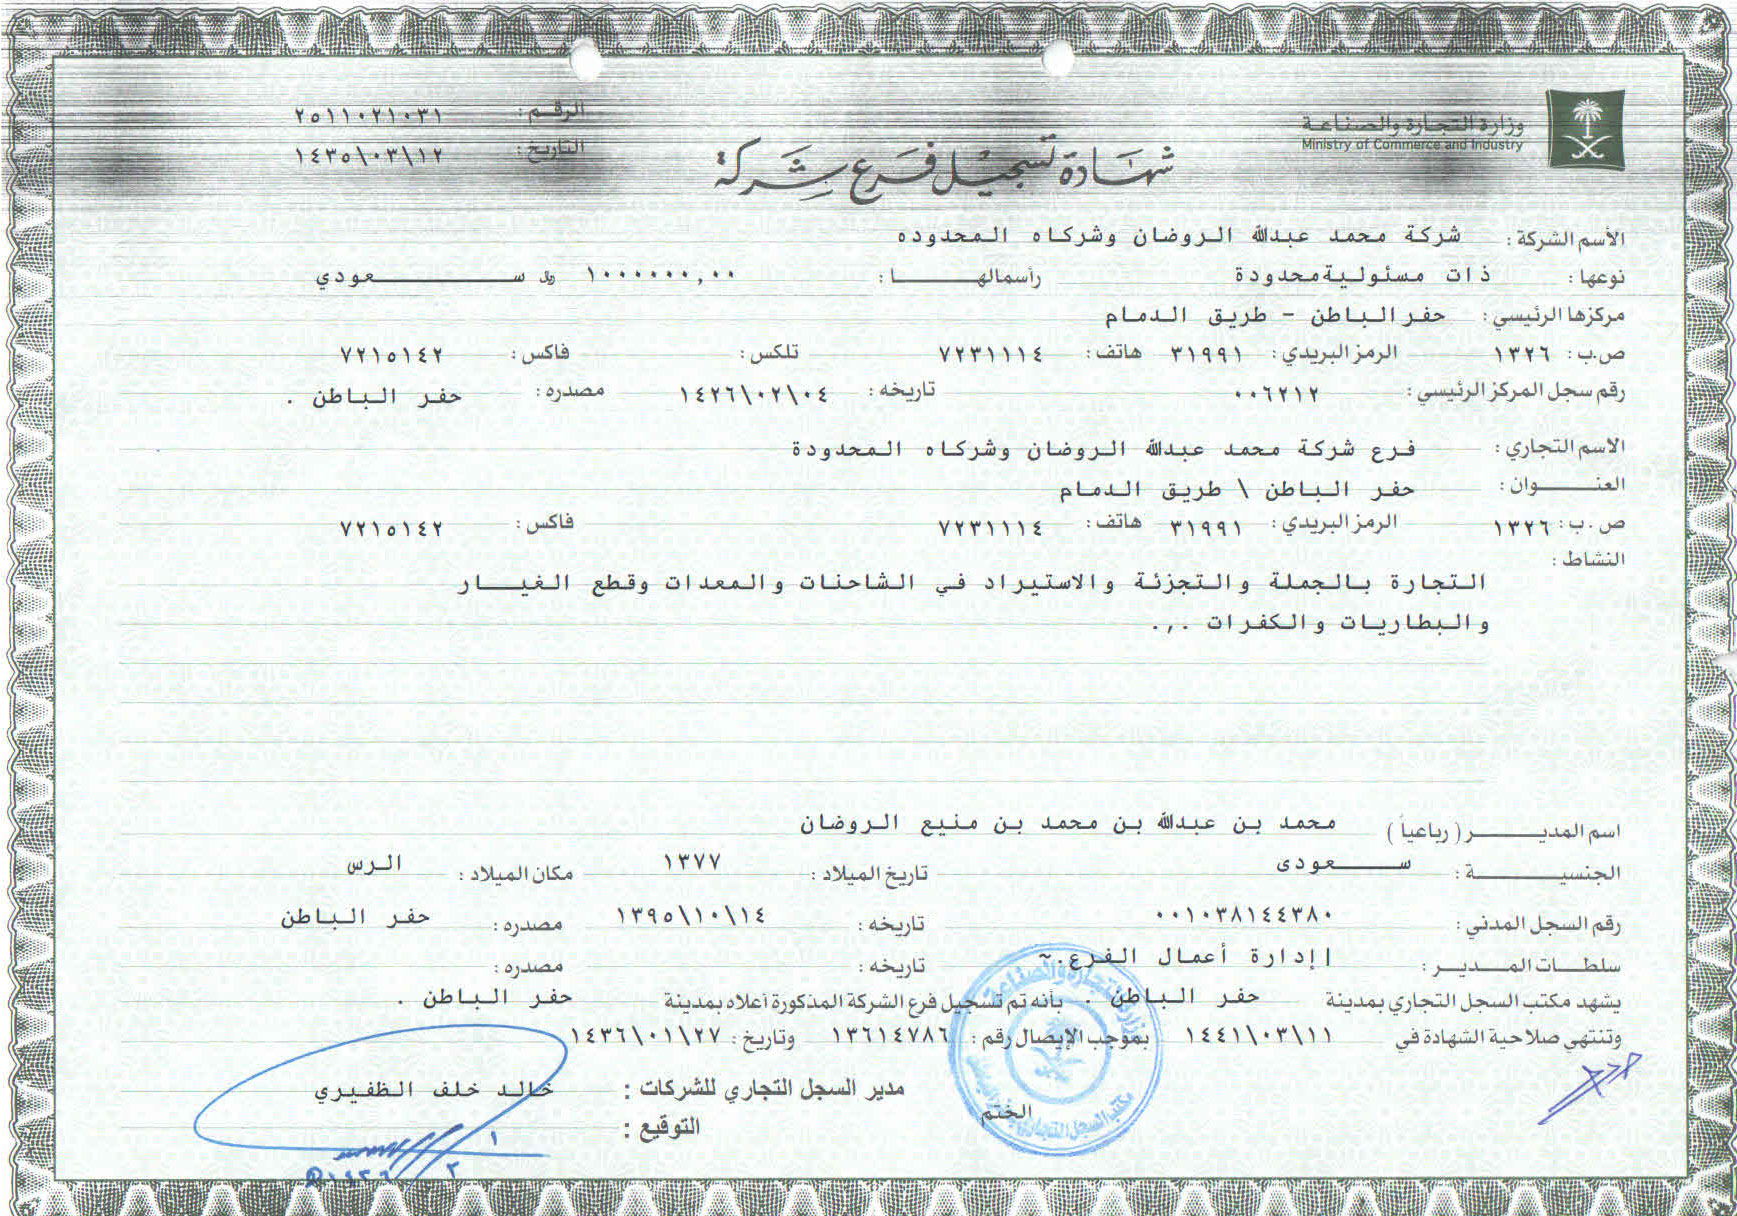 وزارة التجارة والصناعة
Ministry of Commerce and Industry
الرقم : ٢٥١١٠٢١٠٣١
التاريخ : ١٤٣٥\٠٣\١٢
شهادة تسجيل فرع شركة
الأسم الشركة : شركة محمد عبدالله الروضان وشركاه المحدوده
نوعها : ذات مسئولية محدودة رأسمالها : ١٠٠٠٠٠٠,٠٠ ريال سعودي
مركزها الرئيسي : حفر الباطن - طريق الدمام
ص.ب : ١٣٢٦ الرمز البريدي : ٣١٩٩١ هاتف : ٧٢٣١١١٤ تلكس : فاكس : ٧٢١٥١٤٢
رقم سجل المركز الرئيسي : ٠٠٦٢١٢ تاريخه : ١٤٢٦\٠٢\٠٤ مصدره : حفر الباطن .
الاسم التجاري : فرع شركة محمد عبدالله الروضان وشركاه المحدودة
العنوان : حفر الباطن \ طريق الدمام
ص.ب : ١٣٢٦ الرمز البريدي : ٣١٩٩١ هاتف : ٧٢٣١١١٤ فاكس : ٧٢١٥١٤٢
النشاط :
التجارة بالجملة والتجزئة والاستيراد في الشاحنات والمعدات وقطع الغيار
والبطاريات والكفرات .,.
اسم المدير ( رباعياً ) محمد بن عبدالله بن محمد بن منيع الروضان
الجنسية : سعودى تاريخ الميلاد : ١٣٧٧ مكان الميلاد : الرس
رقم السجل المدني : ٠٠١٠٣٨١٤٤٣٨٠ تاريخه : ١٣٩٥\١٠\١٤ مصدره : حفر الباطن
سلطات المدير : إدارة أعمال الفرع.~ تاريخه : مصدره :
يشهد مكتب السجل التجاري بمدينة حفر الباطن . بأنه تم تسجيل فرع الشركة المذكورة أعلاه بمدينة حفر الباطن .
وتنتهي صلاحية الشهادة في ١٤٤١\٠٣\١١ بموجب الإيصال رقم : ١٣٦١٤٧٨٦ وتاريخ : ١٤٣٦\٠١\٢٧
مدير السجل التجاري للشركات : خالد خلف الظفيري
الختم
التوقيع :